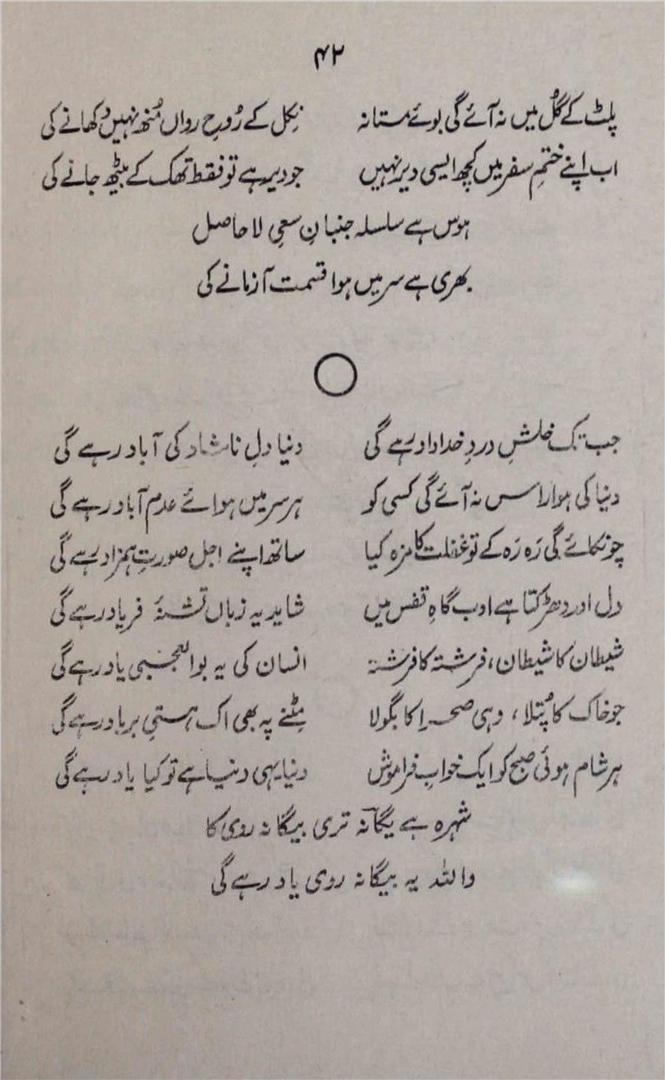 ۴۲
پلٹ کے گُل میں نہ آئے گی بوئے مستانہ نِکل کے رُوحِ رواں مُنھ نہیں دکھانے کی
اب اپنے ختمِ سفر میں کچھ ایسی دیر نہیں جو دیر ہے تو فقط تھک کے بیٹھ جانے کی
ہوس ہے سلسلہ جنبانِ سعیِ لا حاصل
بھری ہے سر میں ہوا قسمت آزمانے کی
جب تک خلشِ دردِ خداداد رہے گی دنیا دلِ ناشاد کی آباد رہے گی
دنیا کی ہوا راس نہ آئے گی کسی کو ہر سر میں ہوائے عدم آباد رہے گی
چونکائے گی رَہ رَہ کے تو غفلت کا مزہ کیا ساتھ اپنے اجل صورتِ ہمزاد رہے گی
دل اور دھڑکتا ہے ادب گاہِ قفس میں شاید یہ زباں تشنۂ فریاد رہے گی
شیطان کا شیطان، فرشتہ کا فرشتہ انسان کی یہ بوالعجبی یاد رہے گی
جو خاک کا پُتلا، وہی صحرا کا بگولا مِٹنے پہ بھی اک ہستیِ برباد رہے گی
ہر شام ہوئی صبح کو ایک خوابِ فراموش دنیا یہی دنیا ہے تو کیا یاد رہے گی
شہرہ ہے یگانہ تری بیگانہ روی کا
واللہ یہ بیگانہ روی یاد رہے گی